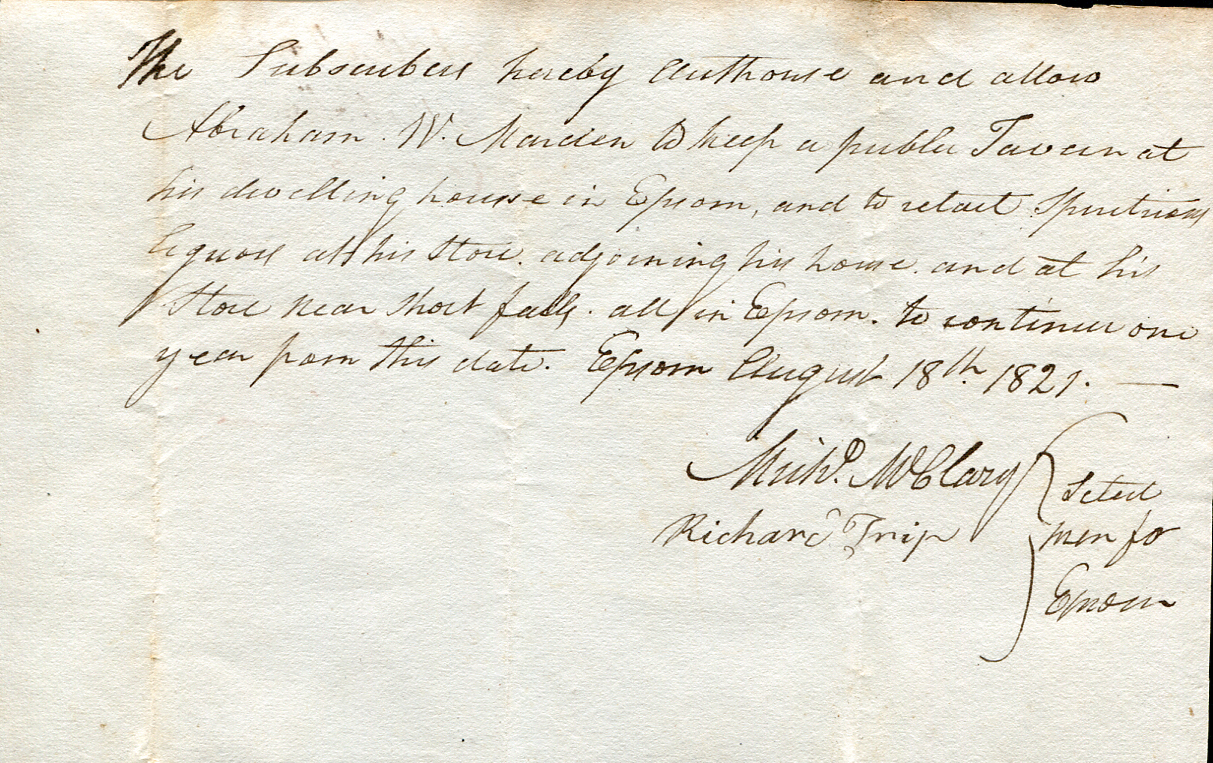 The Subscribers hereby Authorise and allow
Abraham. W. Marden to keep a public Tavern at
his dwelling house in Epsom, and to retail Spiritious
liquors at his Store. adjoining his house. and at his
Store near Short falls. all in Epsom. to continue one
year from this date. Epsom August 18th. 1821. —
Michl. McClary
Richard Tripp
Select
men for
Epsom